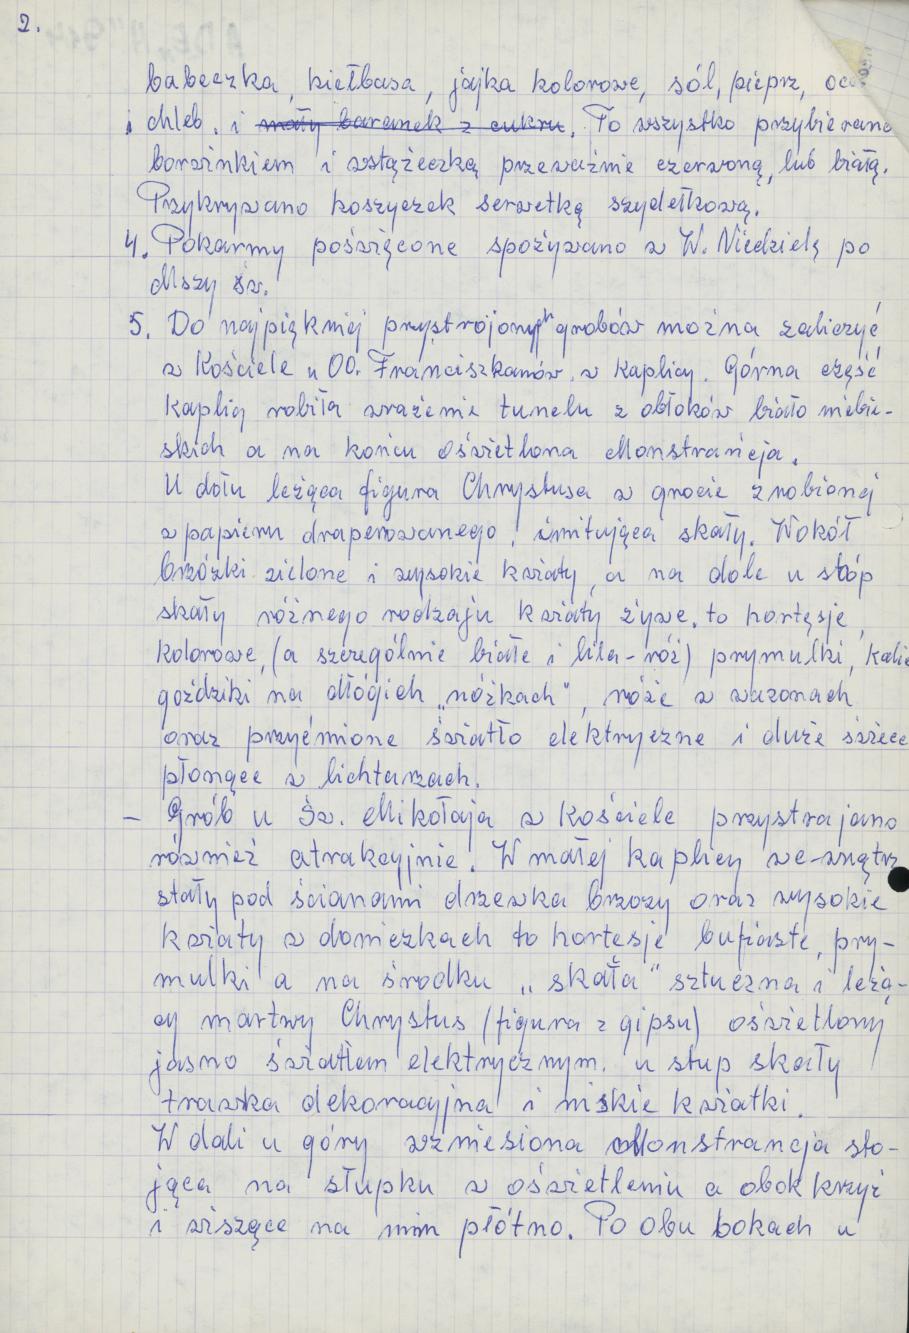 2.
babeczka, kiełbasa, jajka kolorowe, sól, pieprz,
i chleb. i ~~mały baranek z cukru~~. To wszystko przybierano
borwinkiem i wstążeczką przeważnie czerwoną, lub białą.
Przykrywano koszyczek serwetką szydełkową.
4. Pokarmy poświęcone spożywano w W. Niedzielę po
Mszy św.
5. Do najpiękniej przystrojonych grobów można zaliczyć
w Kościele u OO. Franciszkanów w kaplicy. Górna część
kaplicy robiła wrażenie tunelu z obłoków biało niebie-
skich a na końcu oświetlona Monstrancja.
U dołu leżąca figura Chrystusa w grocie zrobionej
z papieru draperowanego, imitująca skały. Wokół
brzózki zielone i wysokie kwiaty, a na dole u stóp
skały różnego rodzaju kwiaty żywe, to hortęsje,
kolorowe, (a szczególnie białe i lila-róż) prymulki,
goździki na dłógich „nóżkach", róże w wazonach
oraz przyćmione światło elektryczne i duże świece
płonące w lichtarzach.
– Grób u Św. Mikołaja w Kościele przystrajano
również atrakcyjnie. W małej kaplicy we-wnątrz
stały pod ścianami drzewka brzozy oraz wysokie
kwiaty w doniczkach to hortęsje bufiaste, pry-
mulki a na środku „skała" sztuczna i leżą-
cy martwy Chrystus (figura z gipsu) oświetlony
jasno światłem elektrycznym. u stup skały
trawka dekoracyjna i niskie kwiatki.
W dali u góry wzniesiona Monstrancja sto-
jąca na słupku w oświetleniu a obok krzyż
i wiszące na nim płótno. Po obu bokach u